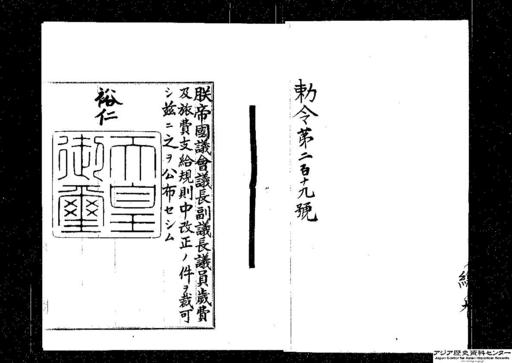 勅令第二百十九號
朕帝國議會議長副議長議員歳費
及旅費支給規則中改正ノ件ヲ裁可
シ茲ニ之ヲ公布セシム
裕仁
天皇
御璽
アジア歴史資料センター
Japan Center for Asian Historical Records